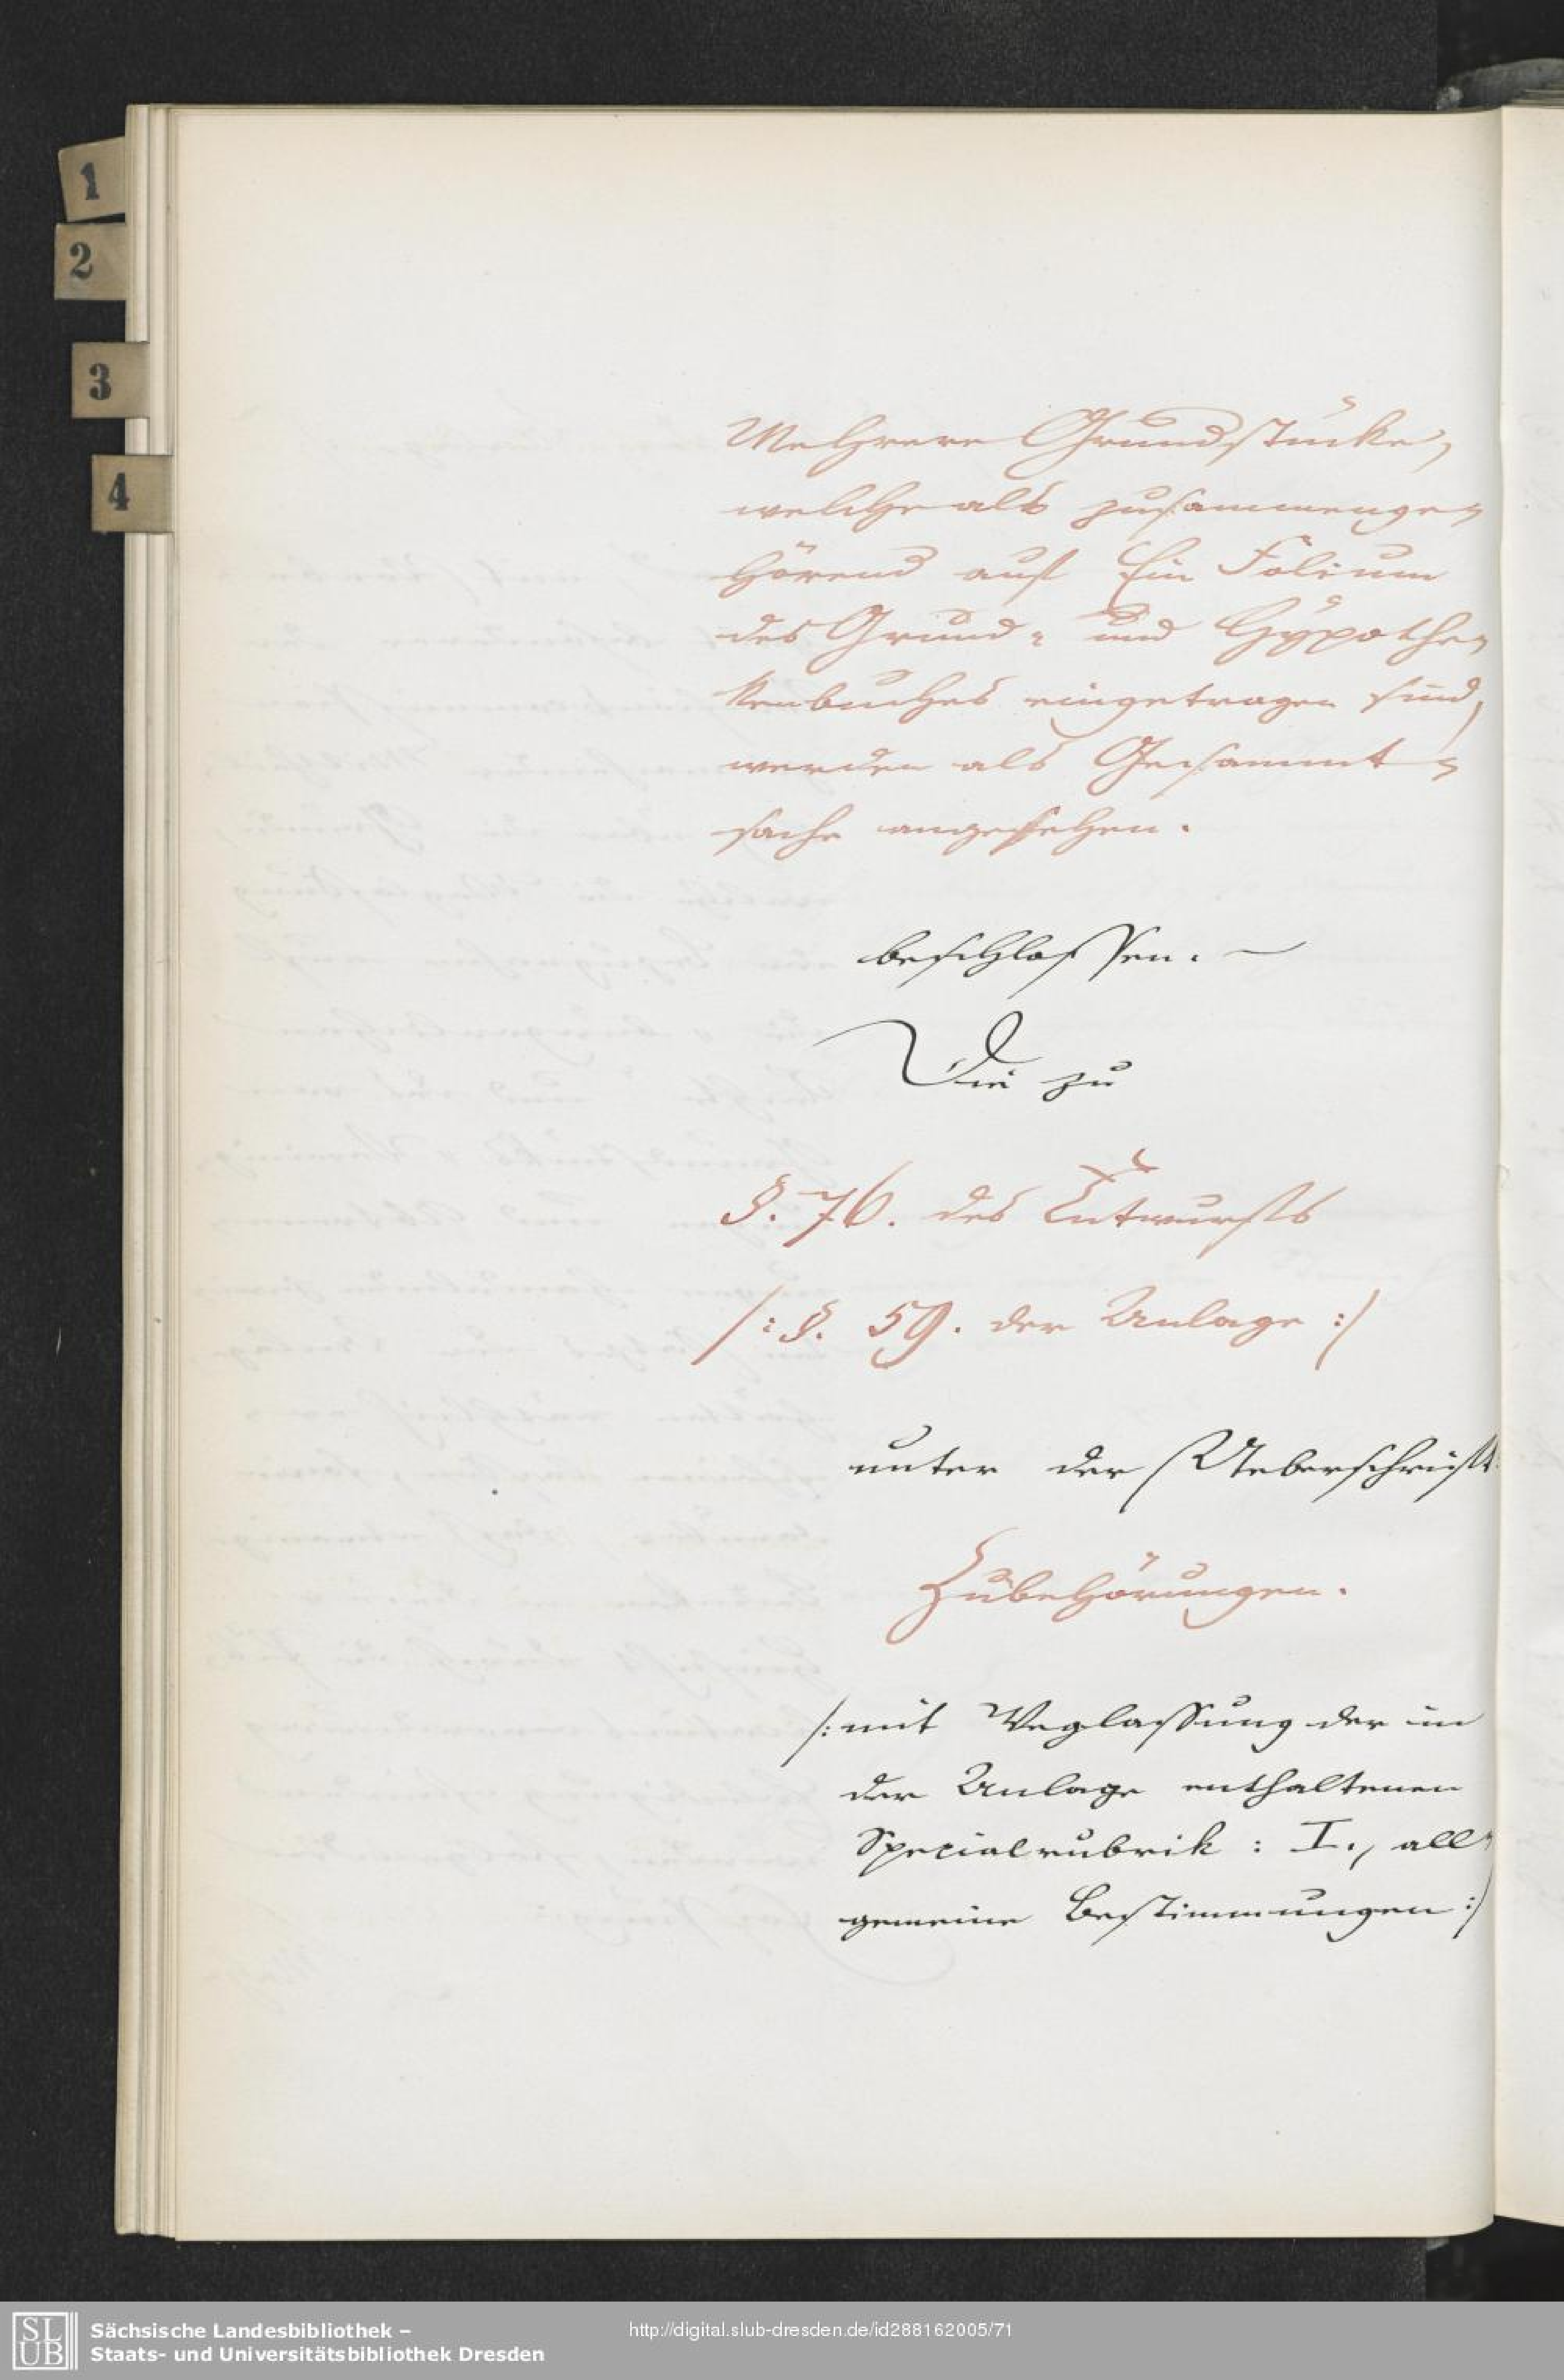 1
2
3
4
Mehrere Grundstücke,
welche als zusammenge-
hörend auf Ein Folium
des Grund- und Hypothe-
kenbuches eingetragen sind,
werden als Gesammt-
sache angesehen.
beschlossen. —
Die zu
§. 76. des Entwurfs
/: §. 59. der Anlage :/
unter der Ueberschrift:
Zubehörungen.
/: mit Weglassung der in
der Anlage enthaltenen
Specialrubrik : I., all-
gemeine Bestimmungen :/
SLUB
Sächsische Landesbibliothek –
Staats- und Universitätsbibliothek Dresden
http://digital.slub-dresden.de/id288162005/71